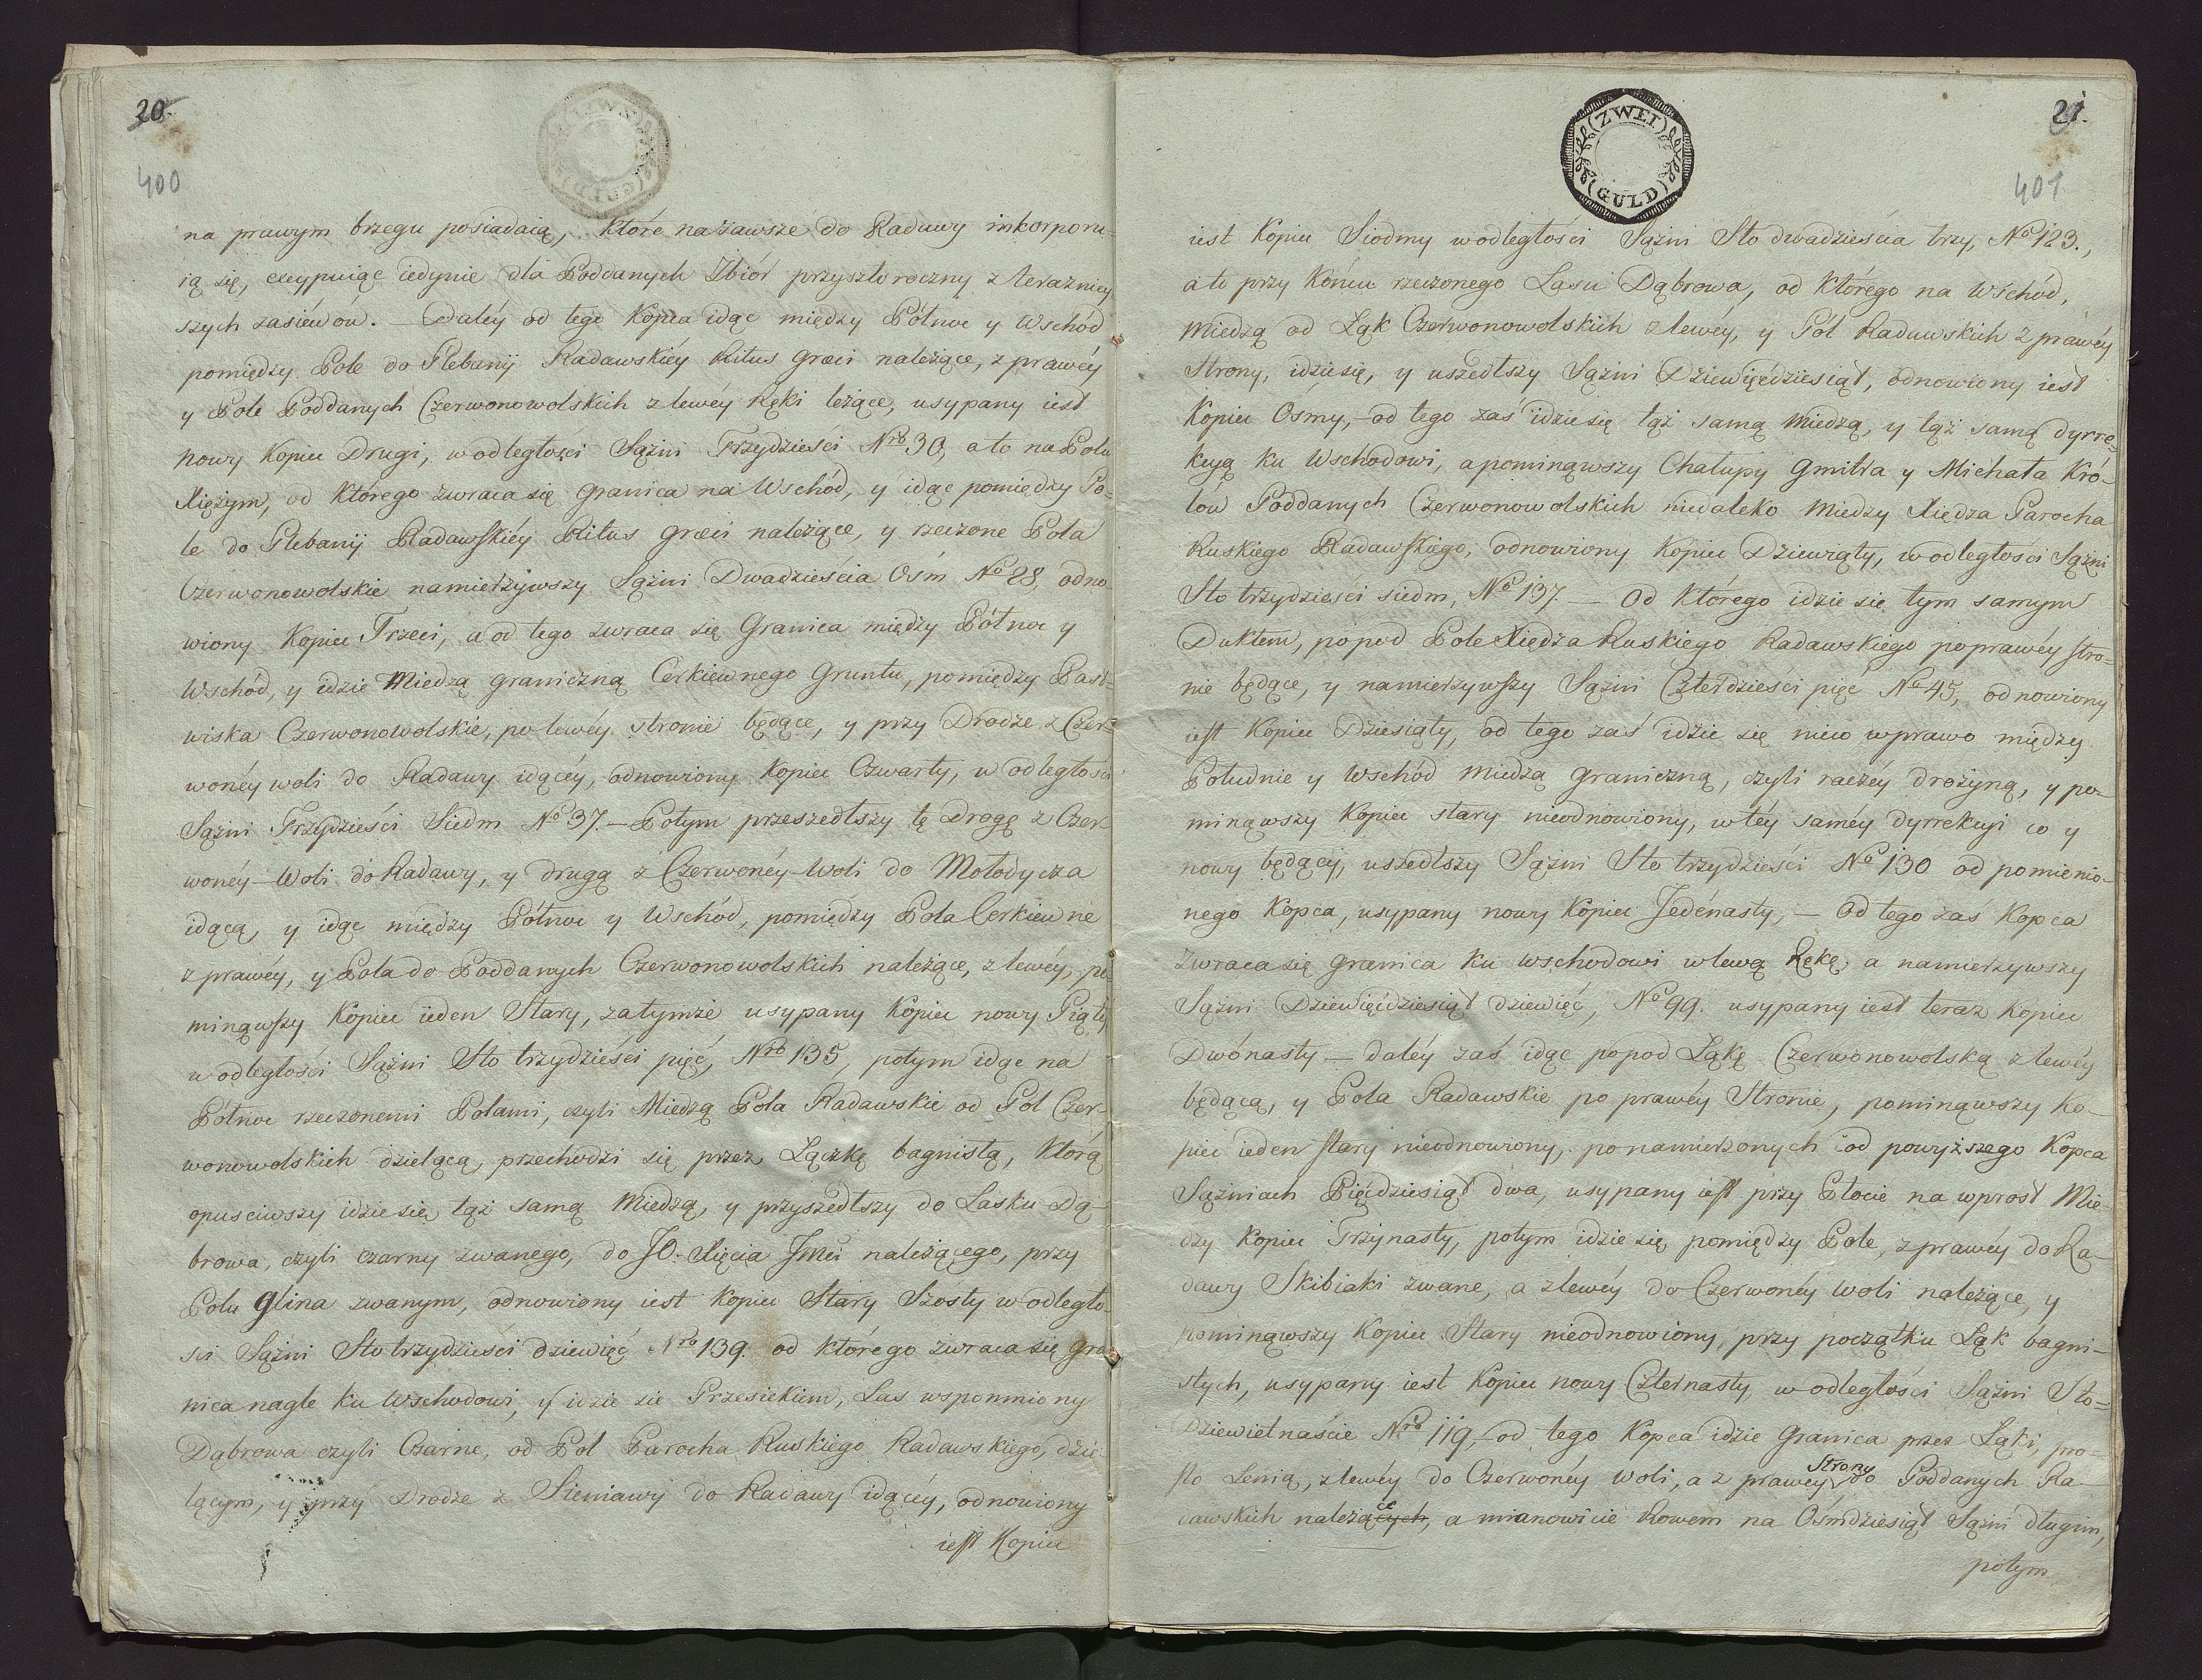 20.
400
na prawym brzegu posiadaią, które nazawsze do Radawy inkorporu-
ią się, excypuiąc iedynie dla Poddanych Zbiór przyszłoroczny z terazniey
szych zasiéwów. — Daléy od tego Kopca idąc między Północ y Wschód
pomiędzy Pole do Plebanij Radawskiéy Ritus græci należące, z prawéy
y Pole Poddanych Czerwonowolskich z lewéy Ręki leżące, usypany iest
nowy Kopiec Drugi, w odległości Sążni Trzydzieści Nro 30, a to na Polu
Xiężym, od którego zwraca się Granica na Wschód, y idąc pomiędzy Po-
le do Plebanij Radawskiéy Ritus græci należące, y rzeczone Pola
Czerwonowolskie namierzywszy Sążni Dwadzieścia Ośm No 28, odno-
wiony Kopiec Trzeci, a od tego zwraca się Granica między Północ y
Wschód, y idzie Miedzą graniczną Cerkiewnego Gruntu, pomiędzy Past-
wiska Czerwonowolskie, po lewéy stronie będące, y przy Drodze z Czer-
wonéy woli do Radawy idącéy, odnowiony Kopiec Czwarty, w odległości
Sążni Trzydzieści Siedm No 37. — Potym przeszedłszy tę Drogę z Czer-
wonéy-Woli do Radawy, y drugą z Czerwonéy-Woli do Mołodycza
idącą, y idąc między Północ y Wschód, pomiędzy Pola Cerkiewne
z prawéy, y Pola do Poddanych Czerwonowolskich należące, z lewéy, po-
minąwszy Kopiec ieden Stary, zatymże usypany Kopiec nowy Piąty,
w odległości Sążni Sto trzydzieści pięć, Nro 135, potym idąc na
Północ rzeczonemi Polami, czyli Miedzą Pola Radawskie od Pol Czer-
wonowolskich dzielącą, przechodzi się przez Łączkę bagnistą, którą
opusciwszy idzie się tąż samą Miedzą, y przyszedłszy do Lasku Dą-
browa, czyli czarny zwanego, do JO. Xięcia Jmci należącego, przy
Polu Glina zwanym, odnowiony iest Kopiec Stary Szosty w odległo-
sci Sążni Sto trzydzieści dziewięć Nro 139. od którego zwraca się Gra
nica nagle ku Wschodowi, y idzie sie Przesiekiem, Las wspomniony
Dąbrowa czyli Czarne, od Pol Parocha Ruskiego Radawskiego, dzie-
lącym, y przy Drodze z Sieniawy do Radawy idącéy, odnowiony
iest Kopiec
ZWEI
GULD
21.
401
iest Kopiec Siodmy w odległości Sążni Sto dwadzieścia trzy, No 123.,
a to przy Końcu rzeczonego Lasu Dąbrowa, od którego na Wschód,
Miedzą od Łąk Czerwonowolskich z lewéy, y Pól Radawskich z prawéy
Strony, idzie się, y uszedłszy Sążni Dziewięćdziesiąt, odnowiony iest
Kopiec Osmy, — od tego zaś idzie się tąż samą Miedzą, y tąż samą dyrre-
kcyą ku Wschodowi, a pominąwszy Chałupy Gmitra y Michała Kró-
low Poddanych Czerwonowolskich niedaleko Miedzy Xiędza Parocha
Ruskiego Radawskiego, odnowiony Kopiec Dziewiąty, w odległości Sążni
Sto trzydzieści siedm, No 137. — Od którego idzie się tym samym
Duktem, popod Pole Xiędza Ruskiego Radawskiego po prawéy stro-
nie będące, y namierzywszy Sążni Czterdzieści pięć No 45, odnowiony
iest Kopiec Dziesiąty, od tego zaś idzie się nieco wprawo między
Południe y Wschód Miedzą graniczną, czyli raczéy drożyną, y po-
minąwszy Kopiec stary nieodnowiony, w téy saméy dyrrekcyi co y
nowy będący, uszedłszy Sążni Sto trzydzieści No 130 od pomienio-
nego Kopca, usypany nowy Kopiec Jedénasty, — Od tego zas Kopca
zwraca się granica ku wschodowi w lewą Rękę, a namierzywszy
Sążni Dziewięćdziesiąt dziewięć, No 99. usypany iest teraz Kopiec
Dwónasty — daléy zaś idąc popod Łąkę Czerwonowolską z lewéy
będącą, y Pola Radawskie po prawéy Stronie, pominąwszy Ko-
piec ieden stary nieodnowiony, po namierzonych od powyższego Kopca
Sążniach Pięćdziesiąt dwa, usypany iest przy Płocie na wprost Mie-
dzy Kopiec Trzynasty, potym idzie się pomiędzy Pole, z prawéy do Ra-
dawy Skibiaki zwane, a z lewéy do Czerwonéy woli należące, y
pominąwszy Kopiec Stary nieodnowiony, przy początku Łąk bagni-
stych, usypany iest Kopiec nowy Czternasty, w odległości Sążni Sto-
Dziewietnaście Nro 119, — od tego Kopca idzie Granica przez Łąki, pro-
sto Lenią, z lewéy do Czerwonéy woli, a z prawey Strony do Poddanych Ra-
dawskich należących, ce a mianowicie Rowem na Ośmdziesiąt Sążni długim,
potym